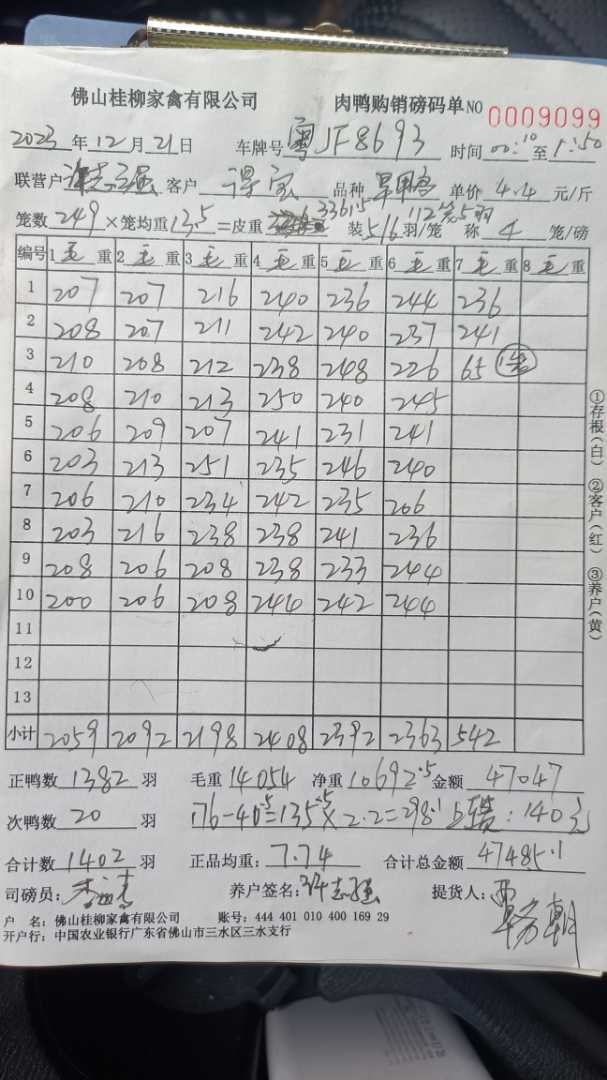 佛山桂柳家禽有限公司 肉鸭购销磅码单 NO 0009099
2023年12月21日 车牌号 粤JF8693 时间 00:10 至 1:50
联营户 客户 品种 单价 4.4 元/斤
笼数 249 ×笼均重 13.5 =皮重 3361.5 装 5/6 羽/笼 称 4 笼/磅
编号 1毛重 2毛重 3毛重 4毛重 5毛重 6毛重 7毛重 8毛重
1 207 207 216 240 236 244 236
2 208 207 211 242 240 237 241
3 210 208 212 238 248 226 65
4 208 210 213 250 240 245
5 206 209 207 241 231 241
6 203 213 251 235 246 240
7 206 210 234 242 235 206
8 203 216 238 238 241 236
9 208 206 208 238 233 244
10 200 206 208 244 242 244
11
12
13
小计 2059 2092 2198 2408 2392 2363 542
正鸭数 1382 羽 毛重 14054 净重 10692.5 金额 47047
次鸭数 20 羽 176-40.5=135.5×2.2=298.1 140元
合计数 1402 羽 正品均重: 7.74 合计总金额 47485.1
司磅员: 养户签名: 提货人:
户 名: 佛山桂柳家禽有限公司 账号: 444 401 010 400 169 29
开户行: 中国农业银行广东省佛山市三水区三水支行
①存根(白) ②客户(红) ③养户(黄)